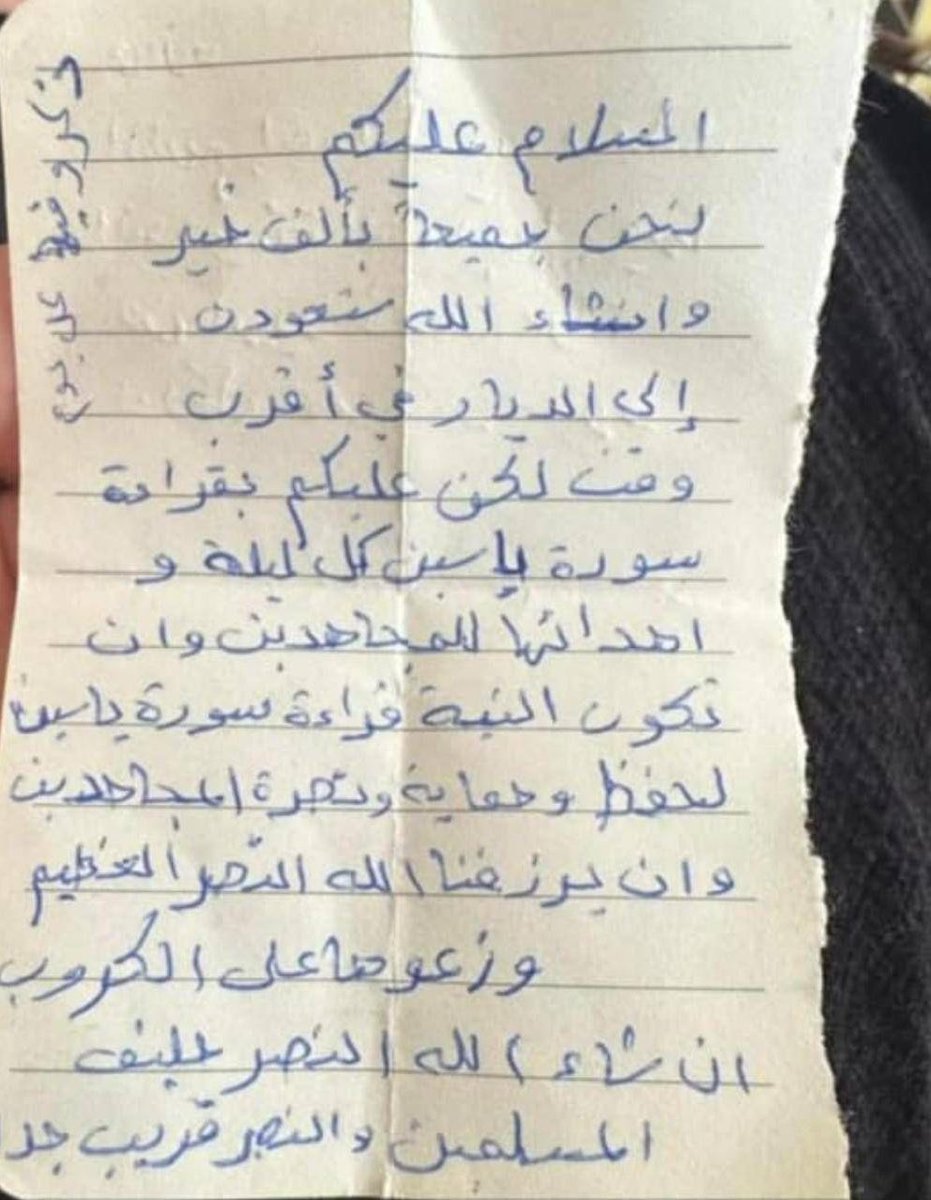 السلام عليكم
نحن جميعاً بألف خير
وانشاء الله ستعودن
إلى الديار في أقرب
وقت لكن عليكم بقراءة
سورة ياسين كل ليلة و
اهدائها للمجاهدين وان
تكون النية قراءة سورة ياسين
لحفظ وحماية ونصرة المجاهدين
وان يرزقنا الله النصر العظيم
وزعوها على الكروب
ان شاء الله النصر حليف
المسلمين والنصر قريب جدا
كل يوم